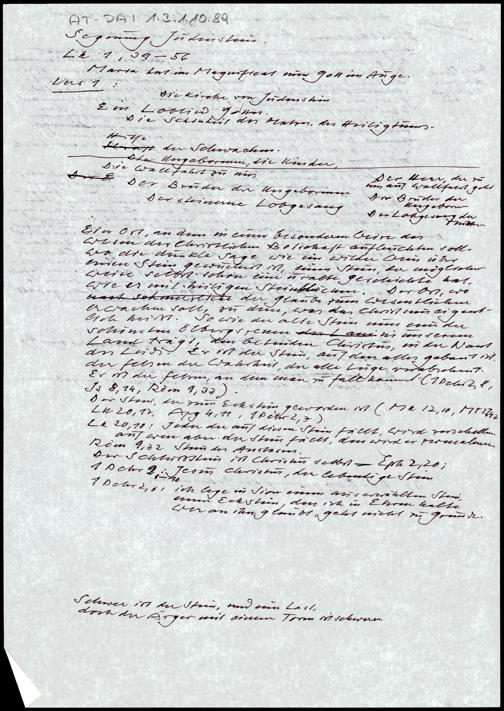 AT-DAI 1.3.1.10.89
Segnung Judenstein.
Lk. 1, 39–56
Maria hat im Magnificat nur Gott im Auge.
Vers 1:
Die Kirche von Judenstein
Ein Loblied
Die Schönheit des Heiligtums.
Hilfe
der Schwachen.
Die Ungeborenen, die Kinder,
Die Wallfahrt zu uns
Der Bruder der Ungeborenen
Der steinerne Lobgesang
Der Herr, der zu
uns auf Wallfahrt geht
Der Bruder der
Ungeborenen
Der Lobgesang der
Ein Ort, an dem in einer besonderen Weise das
Wesen der Christlichen Botschaft aufleuchten soll.
wo die dunkle Sage wie ein wilder Wein über
einen Stein gewuchert ist, einen Stein, der möglicher
weise selbst schon eine uralte Geschichte hat,
wie es mit heiligen Steinen. Der Ort, wo
der Glaube zum Wesentlichen
erwachen soll, zu dem, was das Christum eigent-
lich heißt. So wie der alte Stein nun eine der
schönsten Ölbergszenen unseres
Landes trägt, den betenden Christus, in der Nacht
des Leides. Er ist der Stein, auf dem alles gebaut ist.
der Felsen der Wahrheit, der alle Lüge
Er ist der Felsen, an dem man zu Fall kommt (1 Petr 2, 8,
Is 8, 14, Röm 9, 33)
Der Stein, der zum Eckstein geworden ist (Mk 12, 10, Mt
Lk 20, 17, Apg 4, 11, 1 Petr 2, 7)
Lk 20, 18: Jeder der auf diesen Stein fällt, wird zerschellen
auf wen aber der Stein fällt, den wird er zermalmen
Röm 9, 32 Stein des Anstoßes
Der Schlußstein ist Christus selbst – Eph 2, 20;
1 Petr 2: Jesus Christus, der lebendige Stein
1 Petr 2, 6: ich lege in Sion einen auserwählten Stein,
einen Eckstein, den ich in Ehren halte
wer an ihn glaubt, geht nicht zu Grunde.
Schwer ist der Stein, und eine Last,
doch der Ärger mit einem Toren ist schwerer